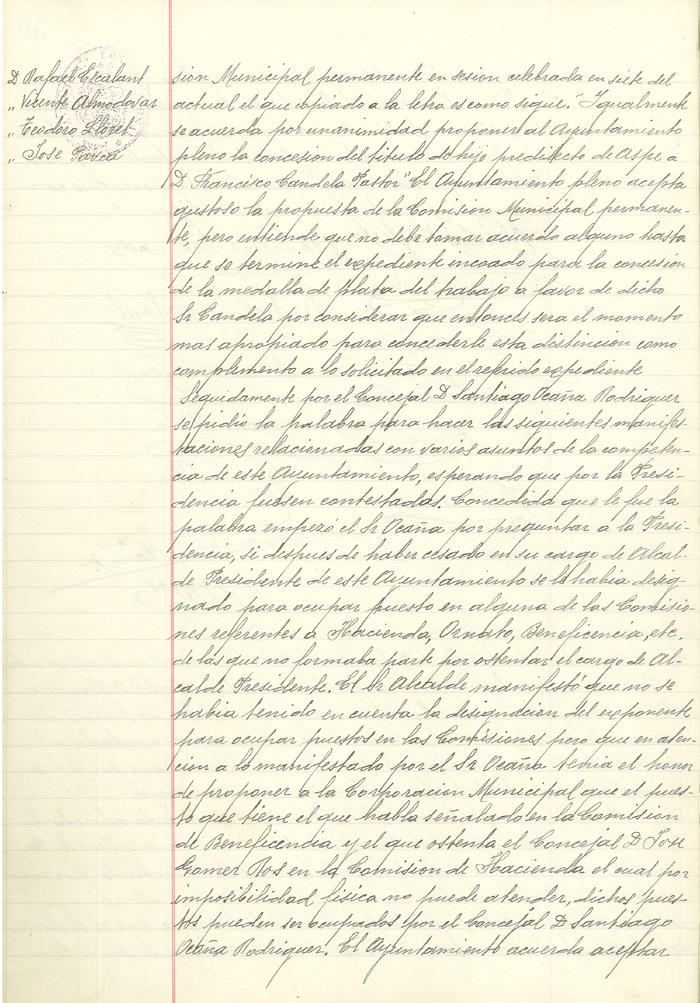 D Rafael Escalant
„ Vicente Almodovar
„ Teodoro Lloret
„ Jose Pavia
sion Municipal permanente en sesion celebrada en siete del
actual el que copiado a la letra es como sigue." Igualmente
se acuerda por unanimidad proponer al Ayuntamiento
pleno la concesion del titulo de hijo predilecto de Aspe a
D Francisco Candela Pastor" El Ayuntamiento pleno acepta
gustoso la propuesta de la Comision Municipal permanen-
te, pero entiende que no debe tomar acuerdo alguno hasta
que se termine el expediente incoado para la concesion
de la medalla de plata del trabajo a favor de dicho
Sr Candela por considerar que entonces sera el momento
mas apropiado para concederle esta distincion como
complemento a lo solicitado en el referido expediente
Seguidamente por el Concejal D Santiago Ocaña Rodriguez
se pidio la palabra para hacer las siguientes manifes-
taciones relacionadas con varios asuntos de la competen-
cia de este Ayuntamiento, esperando que por la Presi-
dencia fuesen contestadas. Concedida que le fue la
palabra empezó el Sr Ocaña por preguntar a la Presi-
dencia, si despues de haber cesado en su cargo de Alcal-
de Presidente de este Ayuntamiento se le habia desig-
nado para ocupar puesto en alguna de las Comisio-
nes referentes a Hacienda, Ornato, Beneficencia, etc.
de las que no formaba parte por ostentar el cargo de Al-
calde Presidente. El Sr Alcalde manifestó que no se
habia tenido en cuenta la designacion del exponente
para ocupar puestos en las Comisiones pero que en aten-
cion a lo manifestado por el Sr Ocaña tenia el honor
de proponer a la Corporacion Municipal que el pues-
to que tiene el que habla señalado en la Comision
de Beneficencia y el que ostenta el Concejal D Jose
Gomez Ros en la Comision de Hacienda el cual por
imposibilidad fisica no puede atender, dichos pues-
tos pueden ser ocupados por el Concejal D Santiago
Ocaña Rodriguez. El Ayuntamiento acuerda aceptar